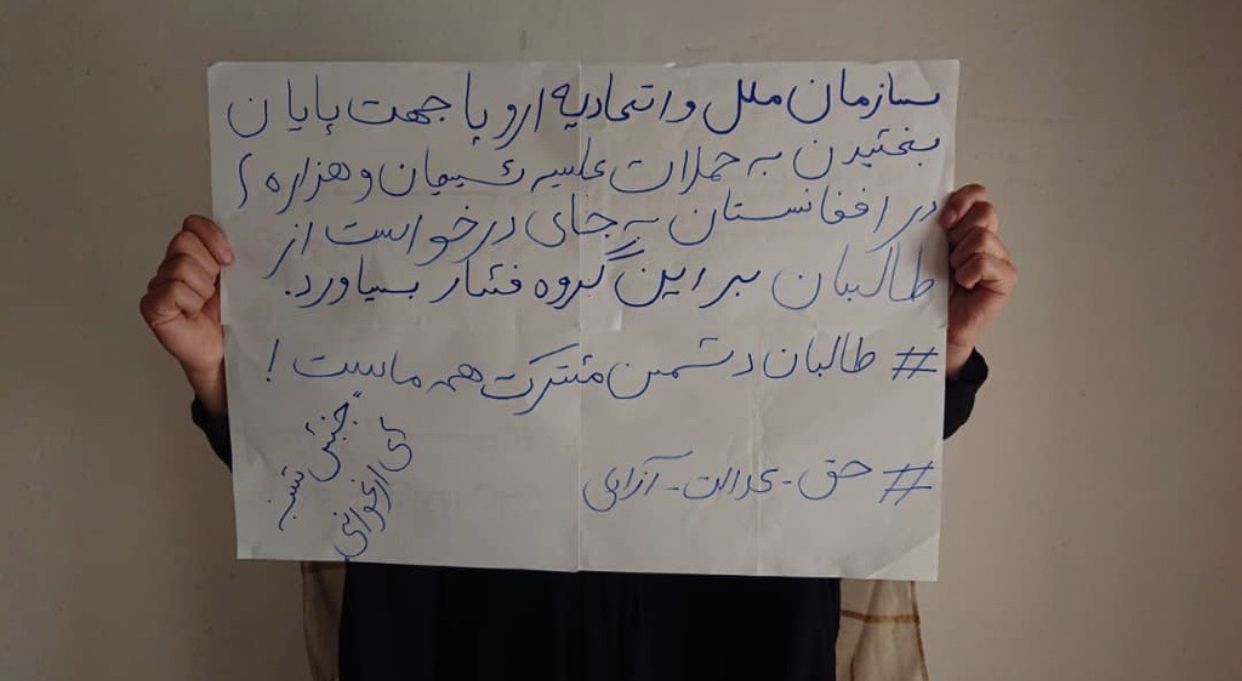 سازمان ملل و اتحادیه اروپا جهت پایان
بخشیدن به حملات علیه شیعیان و هزاره ها
در افغانستان به جای درخواست از
طالبان بر این گروه فشار بیاورد.
# طالبان دشمن مشترک همه ماست !
# حق - عدالت - آزادی
"جنبش شنبه
های ارغوانی